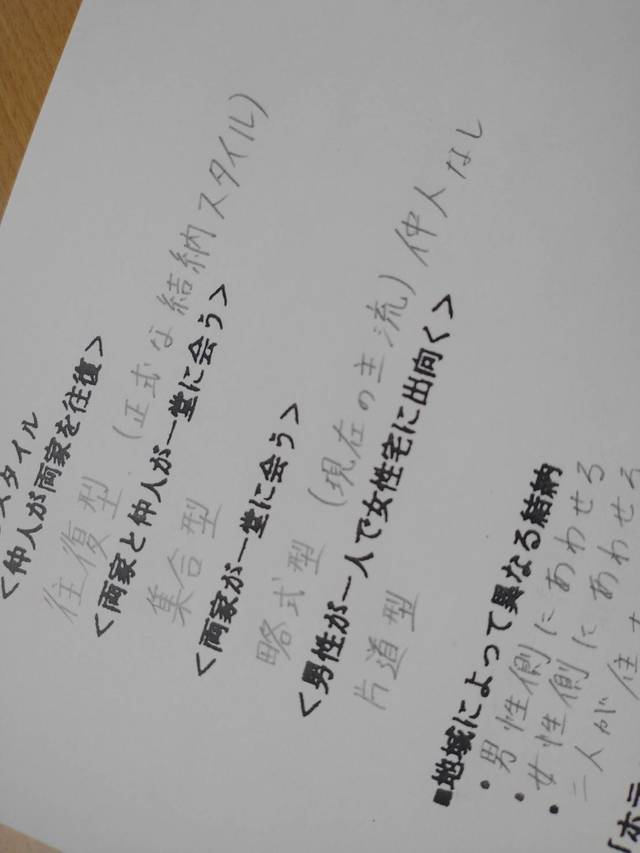 スタイル
<仲人が両家を往復>
往復型 (正式な結納スタイル)
<両家と仲人が一堂に会う>
集合型
<両家が一堂に会う>
略式型 (現在の主流) 仲人なし
<男性が一人で女性宅に出向く>
片道型
■地域によって異なる結納
・男性側にあわせる
・女性側にあわせる
・二人が住
「ホテ